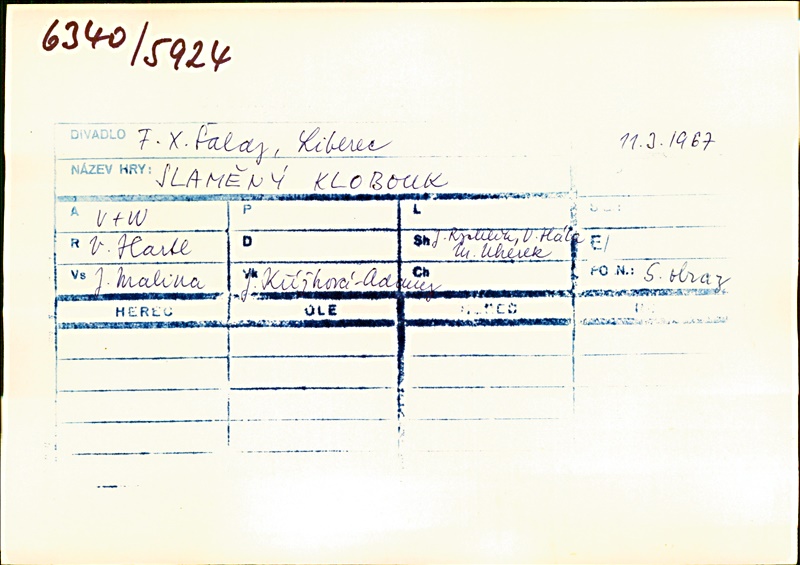 6340/5924
DIVADLO F. X. Šaldy, Liberec 11.3.1967
NÁZEV HRY: SLAMĚNÝ KLOBOUK
A V+W P L
R V. Hartl D Sh J. Rychlík, V. Hála E/
M. Uherek
Vs J. Malina Vk J. Křížková-Adamcz Ch PO N.: 5. obraz
HEREC OLE